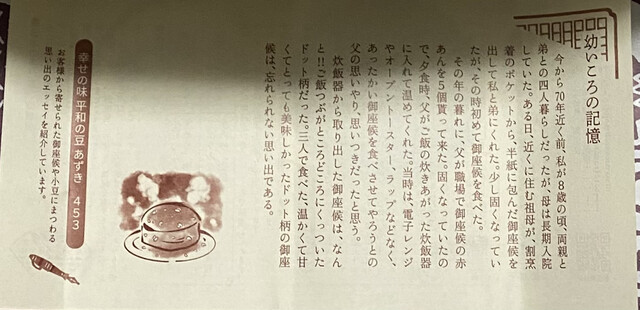 幼いころの記憶
今から70年近く前、私が8歳の頃、両親と
弟との四人暮らしだったが、母は長期入院
していた。ある日、近くに住む祖母が、割烹
着のポケットから、半紙に包んだ御座候を
出して私と弟にくれた。少し固くなってい
たが、その時初めて御座候を食べた。
その年の暮れに、父が職場で御座候の赤
あんを5個貰って来た。固くなっていたの
で、夕食時、父がご飯の炊きあがった炊飯器
に入れて温めてくれた。当時は、電子レンジ
やオーブントースター、ラップなどなく、
あったかい御座候を食べさせてやろうとの
父の思いやり、思いつきだったと思う。
炊飯器から取り出した御座候は、なん
と!!ご飯つぶがところどころにくっついた
ドット柄だった。三人で食べた、温かくて甘
くてとっても美味しかったドット柄の御座
候は、忘れられない思い出である。
幸せの味 平和の豆 あずき 453
お客様から寄せられた御座候や小豆にまつわる
思い出のエッセイを紹介しています。